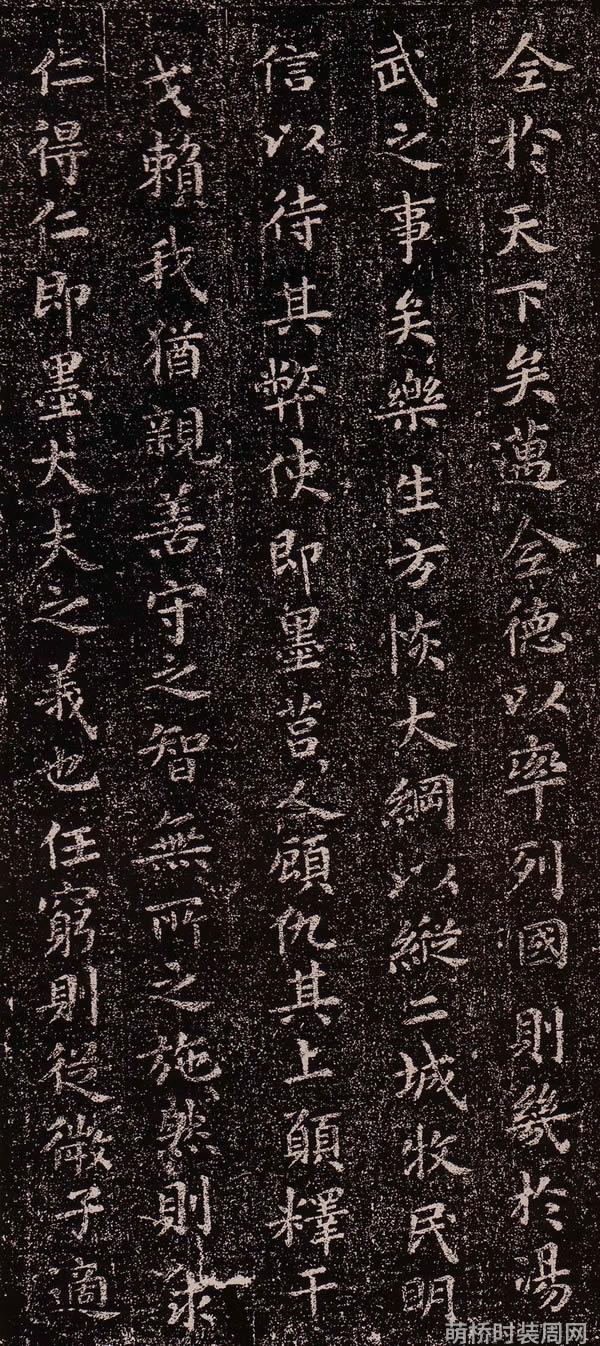 全於天下矣邁全德以率列國則幾於湯
武之事矣樂生方恢大綱以縱二城牧民明
信以待其弊使即墨莒人顧仇其上願釋干
戈賴我猶親善守之智無所之施然則求
仁得仁即墨大夫之義也任窮則從微子適
萌桥时装周网